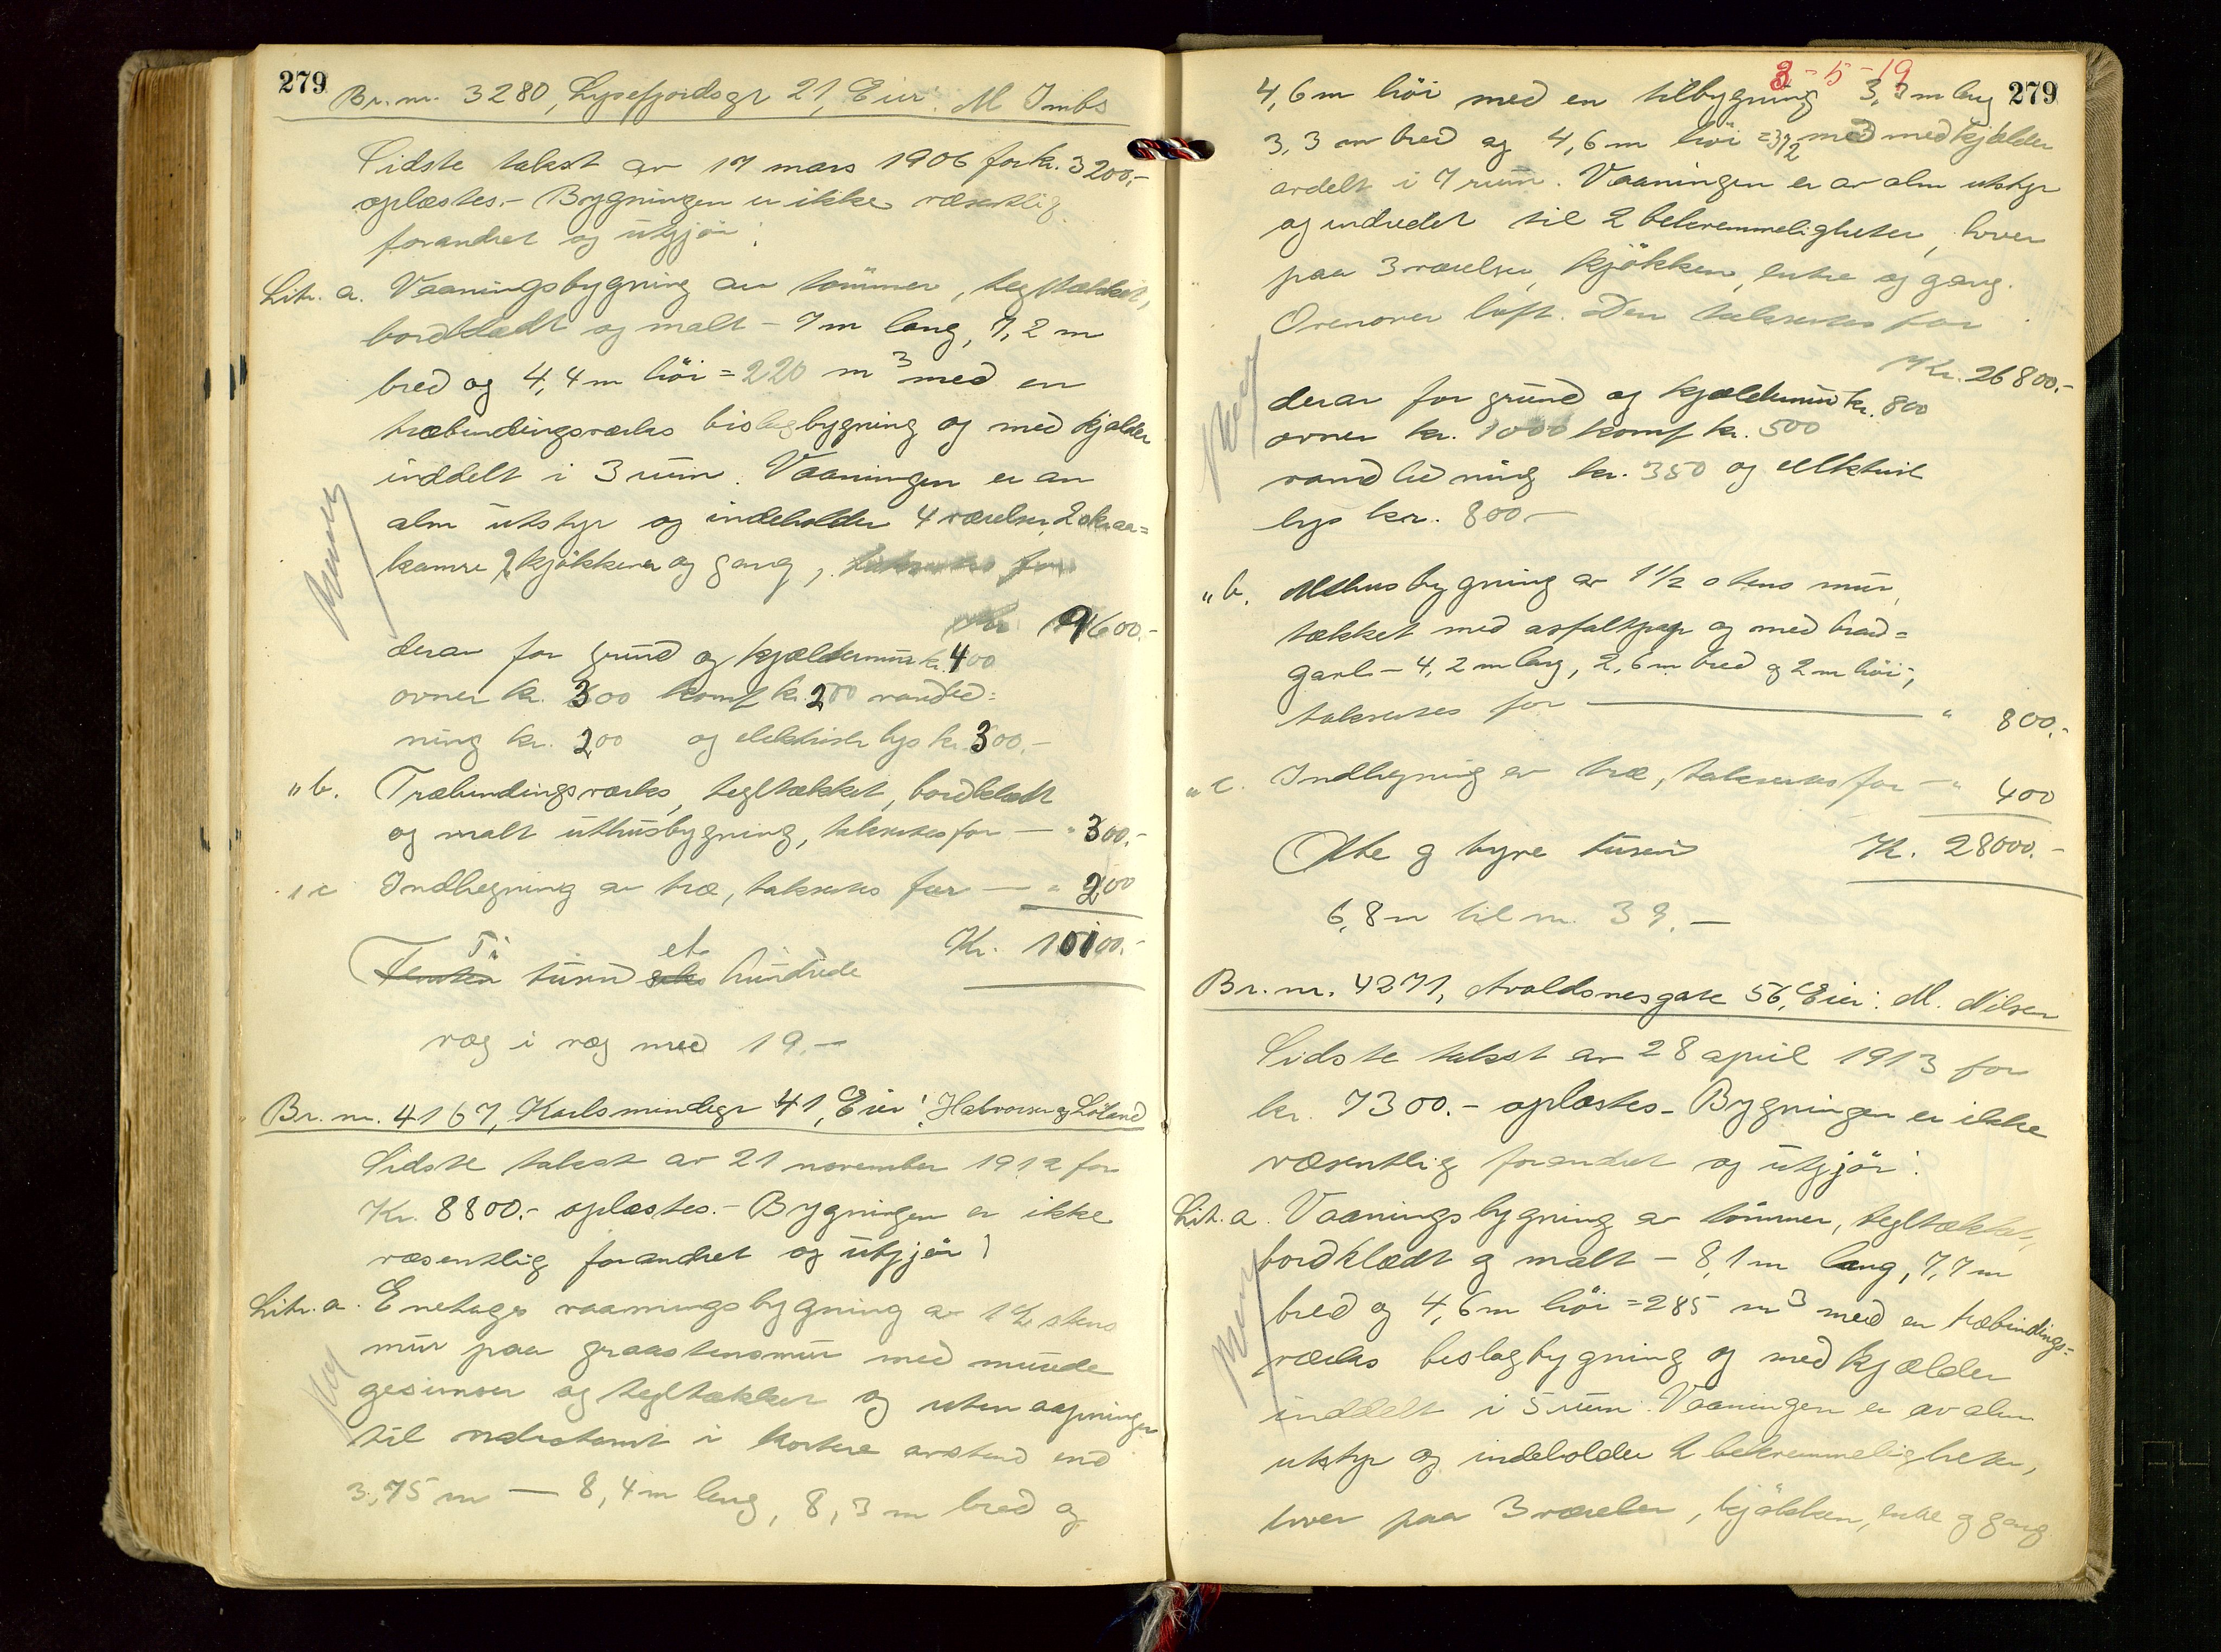 279
Br. nr. 3280, Lysefjordsgt 21, Eier: M Imbs
Sidste takst av 17 mars 1906 for kr. 3200,-
oplæstes.- Bygningen er ikke væsentlig
forandret og utgjör:
Litr. a. Vaaningsbygning av tömmer, tegltækket,
bordklædt og malt - 7 m lang, 7,2 m
bred og 4,4 m höi = 220 m³ med en
træbindingsverks bislagbygning og med kjælder
inddelt i 3 rum. Vaaningen er av
alm utstyr og indeholder 4 værelser, 2 skraa=
kamre 2 kjökkener og gang,
9600.-
derav for grund og kjældermur kr. 400
ovner kr. 300 komf kr. 200 vandled=
ning kr. 200 og elektrisk lys kr. 300.-
" b. Træbindingsverks, tegltækket, bordklædt
og malt uthusbygning, takseres for — " 300.-
" c Indhegning av træ, takseres for — " 200
Kr. 10100.-
Ti et
tusind seks hundrede
væg i væg med 19.-
Br. nr. 4167, Karlsmindegt 41, Eier: Halvorsen og Löland
Sidste takst av 21 november 1912 for
Kr. 8800.- oplæstes.- Bygningen er ikke
væsentlig forandret og utgjör:
Litr. a. Enetages vaaningsbygning av 1½ stens
mur paa graastensmur med murede
gesimser og tegltækket og uten aapninger
til nabotomt i kortere avstand end
3,75 m — 8,4 m lang, 8,3 m bred og
3-5-19
279
4,6 m höi med en tilbygning 3,3 m lang
3,3 m bred og 4,6 m höi = 372 m3 med kjælder
avdelt i 7 rum. Vaaningen er av alm utstyr
og indredet til 2 bekvemmeligheter, hver
paa 3 værelser, kjökken, entre og gang.
Ovenover loft. Den takseres for
Kr. 26800.-
derav for grund og kjældermur kr. 800
ovner kr. 1000 komf kr. 500
vandledning kr. 350 og elektrisk
lys kr. 800.-
" b. Uthusbygning av 1 1/2 stens mur,
tækket med asfaltpap og med brand=
gavl - 4,2 m lang, 2,6 m bred og 2 m höi;
takseres for — " 800.-
" c. Indhegning av træ, takseres for — " 400
Otte og tyve tusind Kr. 28000.-
6,8 m til nr. 39.-
Br. nr. 4271, Avaldsnesgate 56, Eier: M. Nilsen
Sidste takst av 28 april 1913 for
kr. 7300.- oplæstes- Bygningen er ikke
væsentlig forandret og utgjör:
Litr. a. Vaaningsbygning av tömmer, tegltækket,
bordklædt og malt - 8,1 m lang, 7,7 m
bred og 4,6 m höi = 285 m3 med en træbindings=
verks bislagbygning og med kjælder
inddelt i 5 rum. Vaaningen er av alm
utstyr og indeholder 2 bekvemmeligheter,
hver paa 3 værelser, kjökken, entre og gang